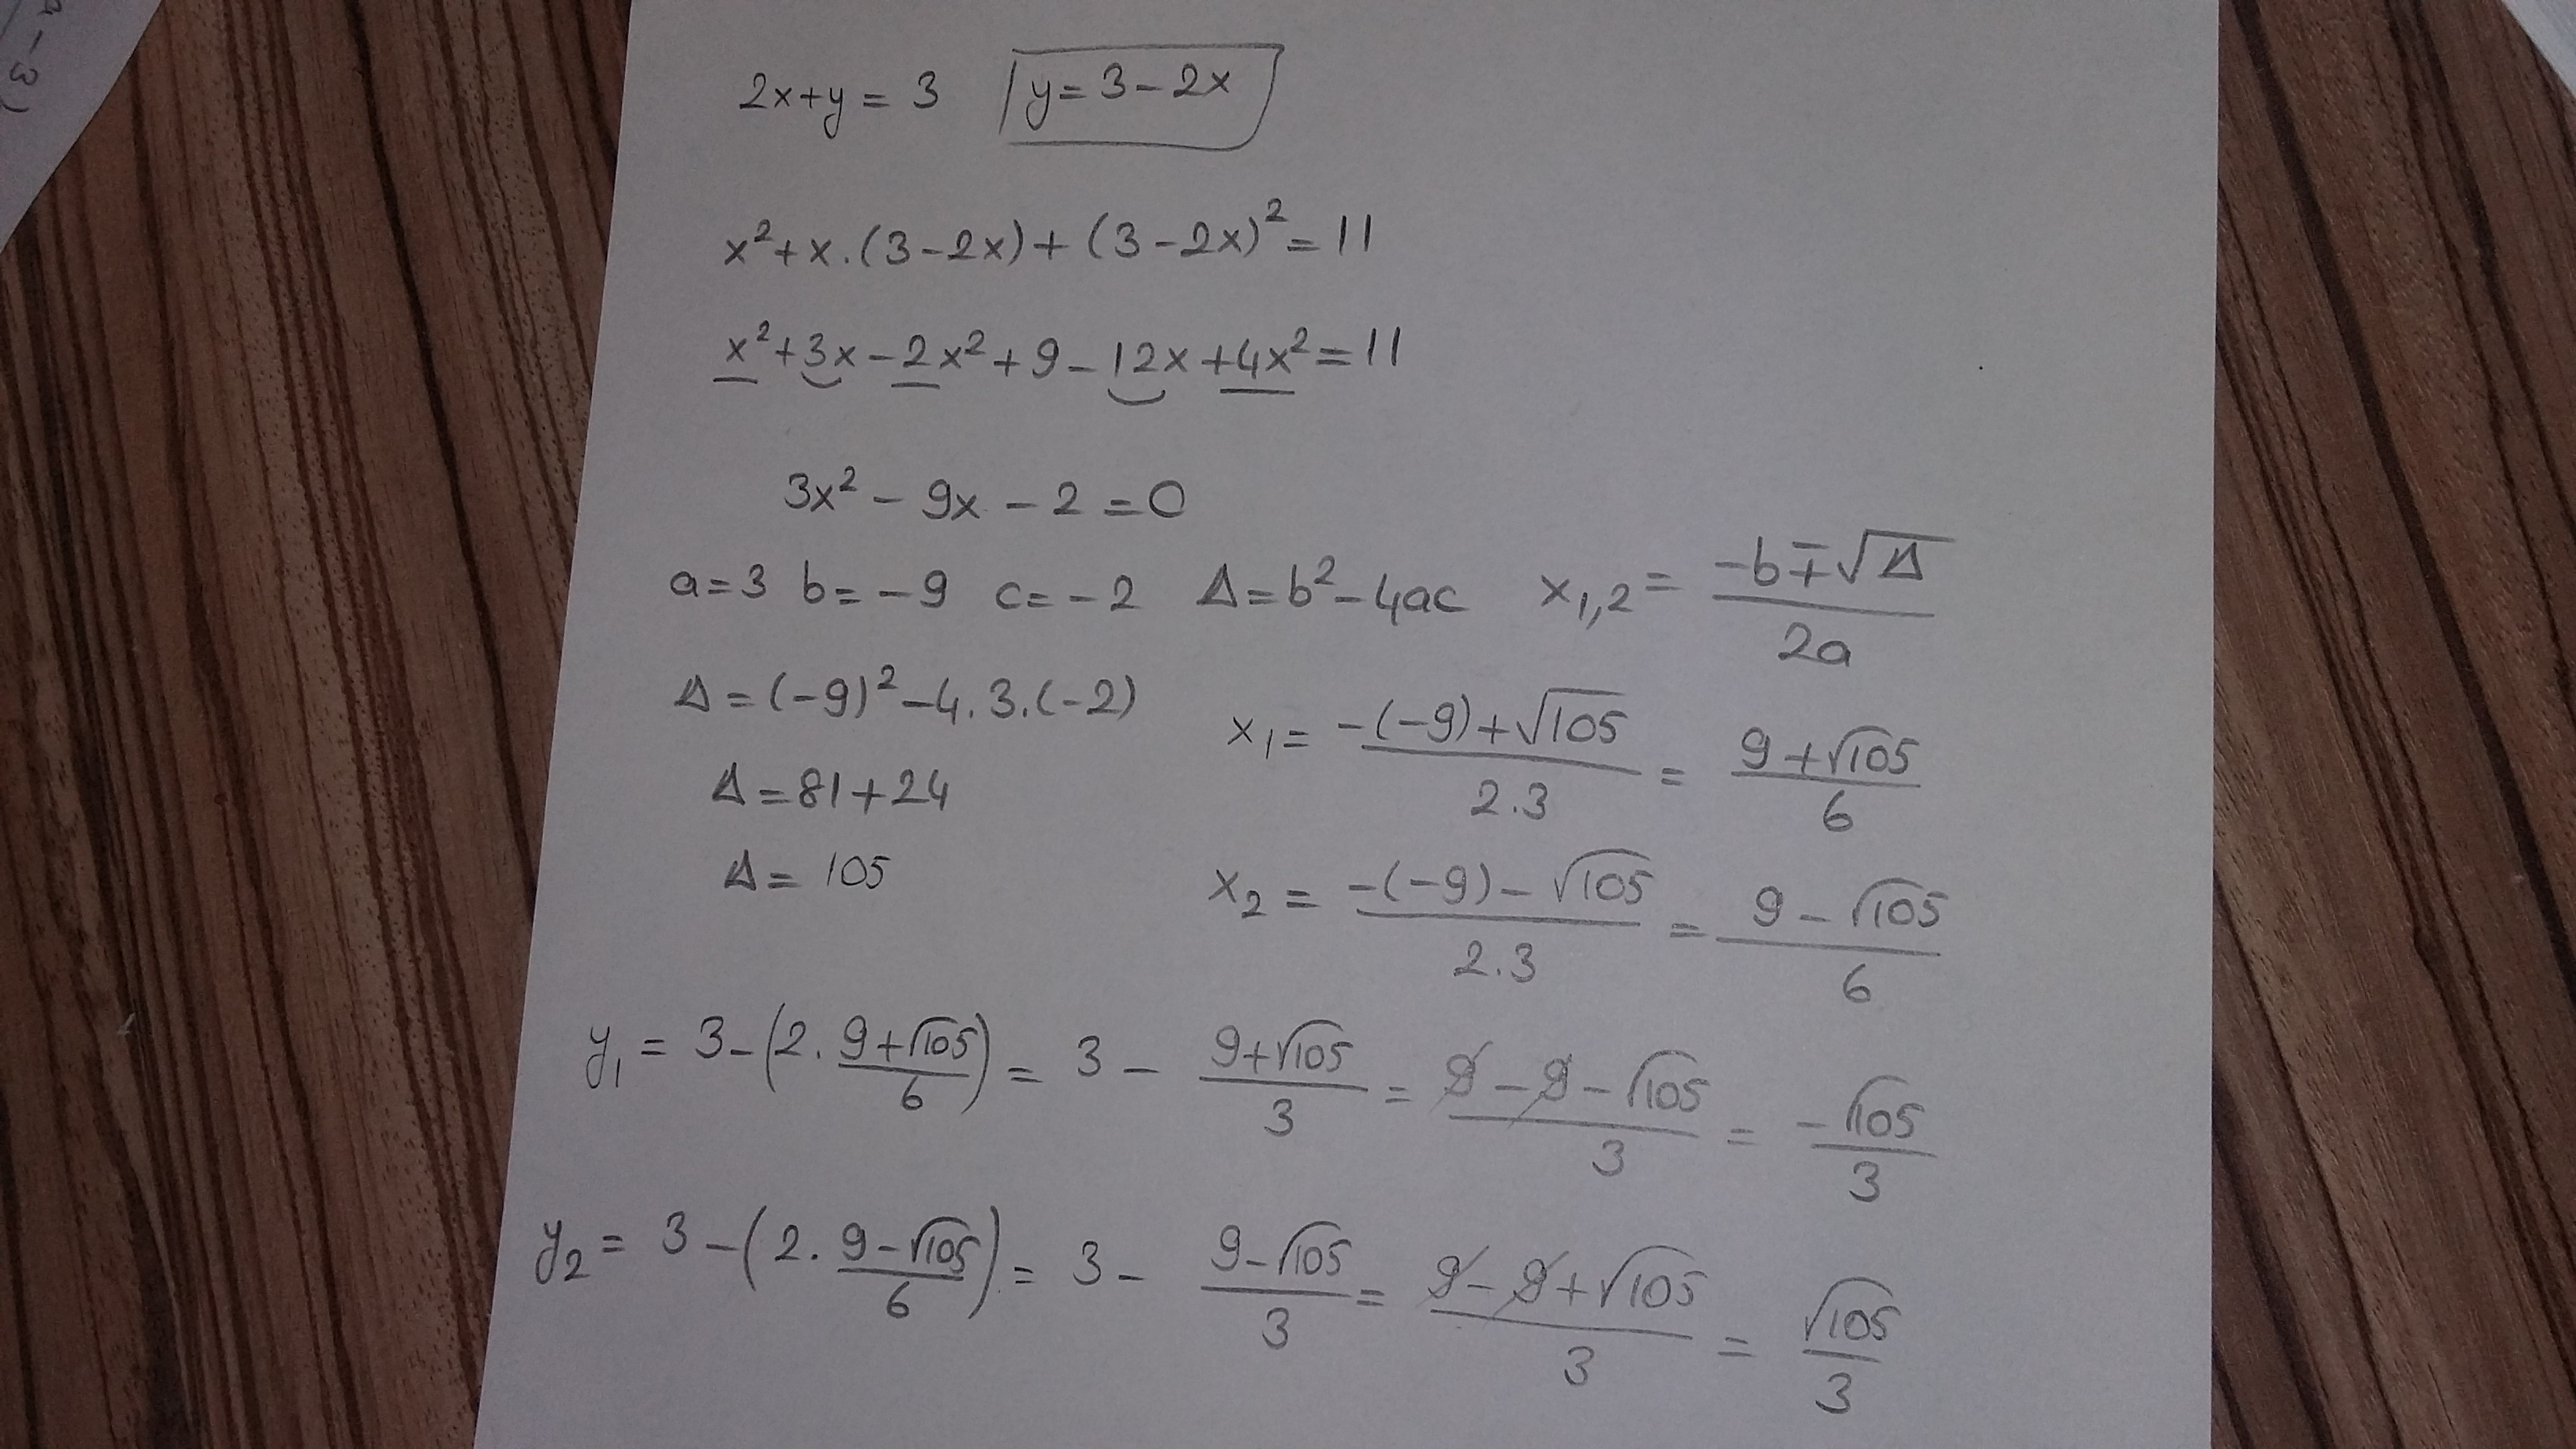 2x+y = 3   y = 3 - 2x
x² + x.(3-2x) + (3-2x)² = 11
x² + 3x - 2x² + 9 - 12x + 4x² = 11
3x² - 9x - 2 = 0
a=3 b=-9 c=-2 Δ=b²-4ac x₁,₂ = (-b∓√Δ)/2a
Δ = (-9)² - 4.3.(-2)
x₁ = (-(-9)+√105)/2.3 = (9+√105)/6
Δ = 81+24
Δ = 105
x₂ = (-(-9)-√105)/2.3 = (9-√105)/6
y₁ = 3-(2.(9+√105)/6) = 3 - (9+√105)/3 = (9-9-√105)/3 = -√105/3
y₂ = 3-(2.(9-√105)/6) = 3 - (9-√105)/3 = (9-9+√105)/3 = √105/3